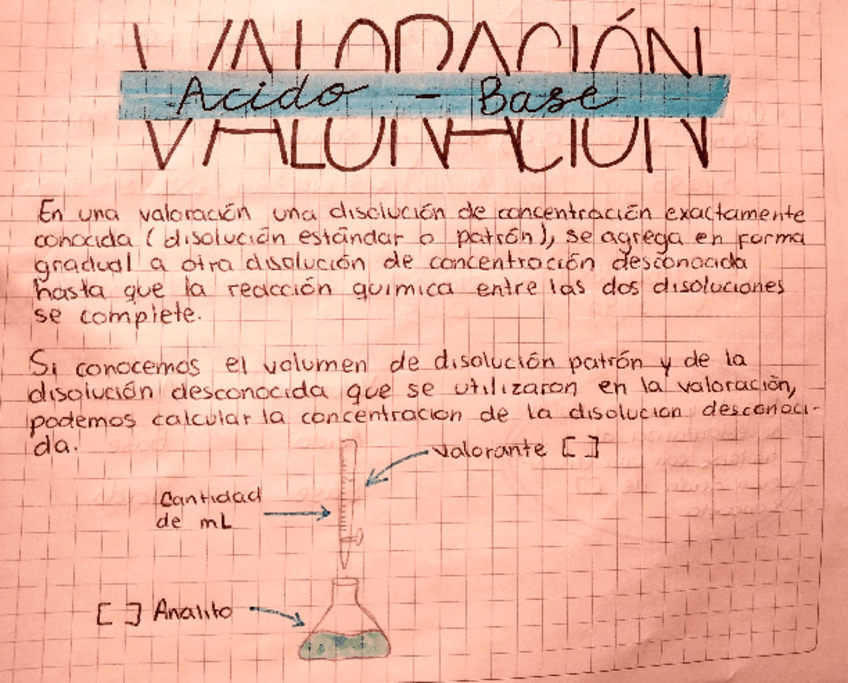 VALORACIÓN
Acido - Base
En una valoración una disolución de concentración exactamente
conocida (disolución estándar o patrón), se agrega en forma
gradual a otra disolución de concentración desconocida
hasta que la reacción química entre las dos disoluciones
se complete.
Si conocemos el volumen de disolución patrón y de la
disolución desconocida que se utilizaron en la valoración,
podemos calcular la concentracion de la disolucion desconoci-
da.
Valorante [ ]
Cantidad
de mL
[ ] Analito